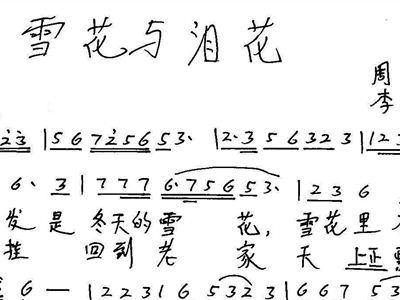 雪花与泪花
周
李
2̇3̇ | 5 6 7 2̇ 5 6 5 3· | 2·3 5 6 3 2 3 | 1 2 3
6· 3 | 7 7 7 6·7 5 6 5 3· | 2 2 3 6
发是冬天的雪花,雪花里
挂 回到老家天上正
6 — | 1 2 2 3 1 6 5 3 2 3 | 6 6 7 5 3